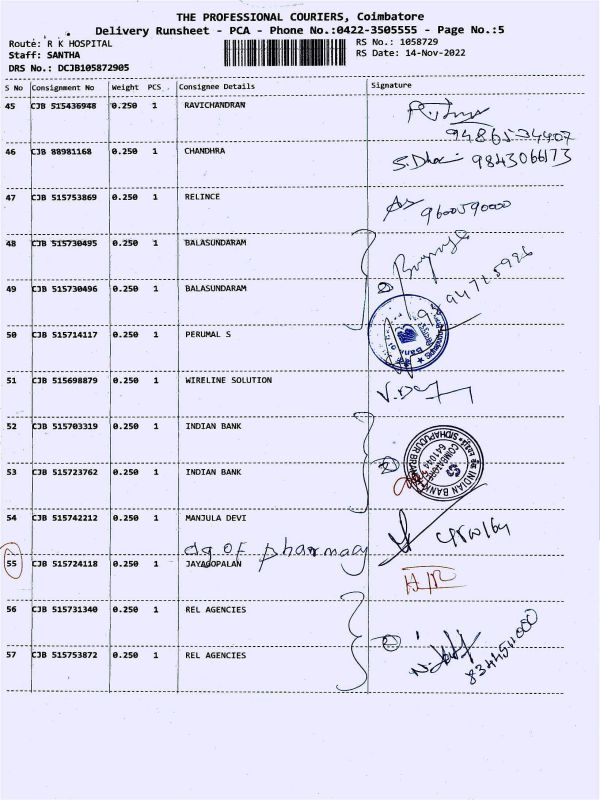 THE PROFESSIONAL COURIERS, Coimbatore
Delivery Runsheet - PCA - Phone No.:0422-3505555 - Page No.:5
Route: R K HOSPITAL
RS No.: 1058729
Staff: SANTHA
RS Date: 14-Nov-2022
DRS No.: DCJB105872905
S No Consignment No Weight PCS Consignee Details Signature
45 CJB 515436948 0.250 1 RAVICHANDRAN
9486534407
46 CJB 88981168 0.250 1 CHANDHRA 9843066173
47 CJB 515753869 0.250 1 RELINCE 9600590000
48 CJB 515730495 0.250 1 BALASUNDARAM
49 CJB 515730496 0.250 1 BALASUNDARAM 2
50 CJB 515714117 0.250 1 PERUMAL S
51 CJB 515698879 0.250 1 WIRELINE SOLUTION
52 CJB 515703319 0.250 1 INDIAN BANK
53 CJB 515723762 0.250 1 INDIAN BANK 2
INDIAN BANK
SIDHAPUDUR BRANCH
COIMBATORE
641044
54 CJB 515742212 0.250 1 MANJULA DEVI
dg of pharmacy
55 CJB 515724118 0.250 1 JAYAGOPALAN
56 CJB 515731340 0.250 1 REL AGENCIES
2
57 CJB 515753872 0.250 1 REL AGENCIES